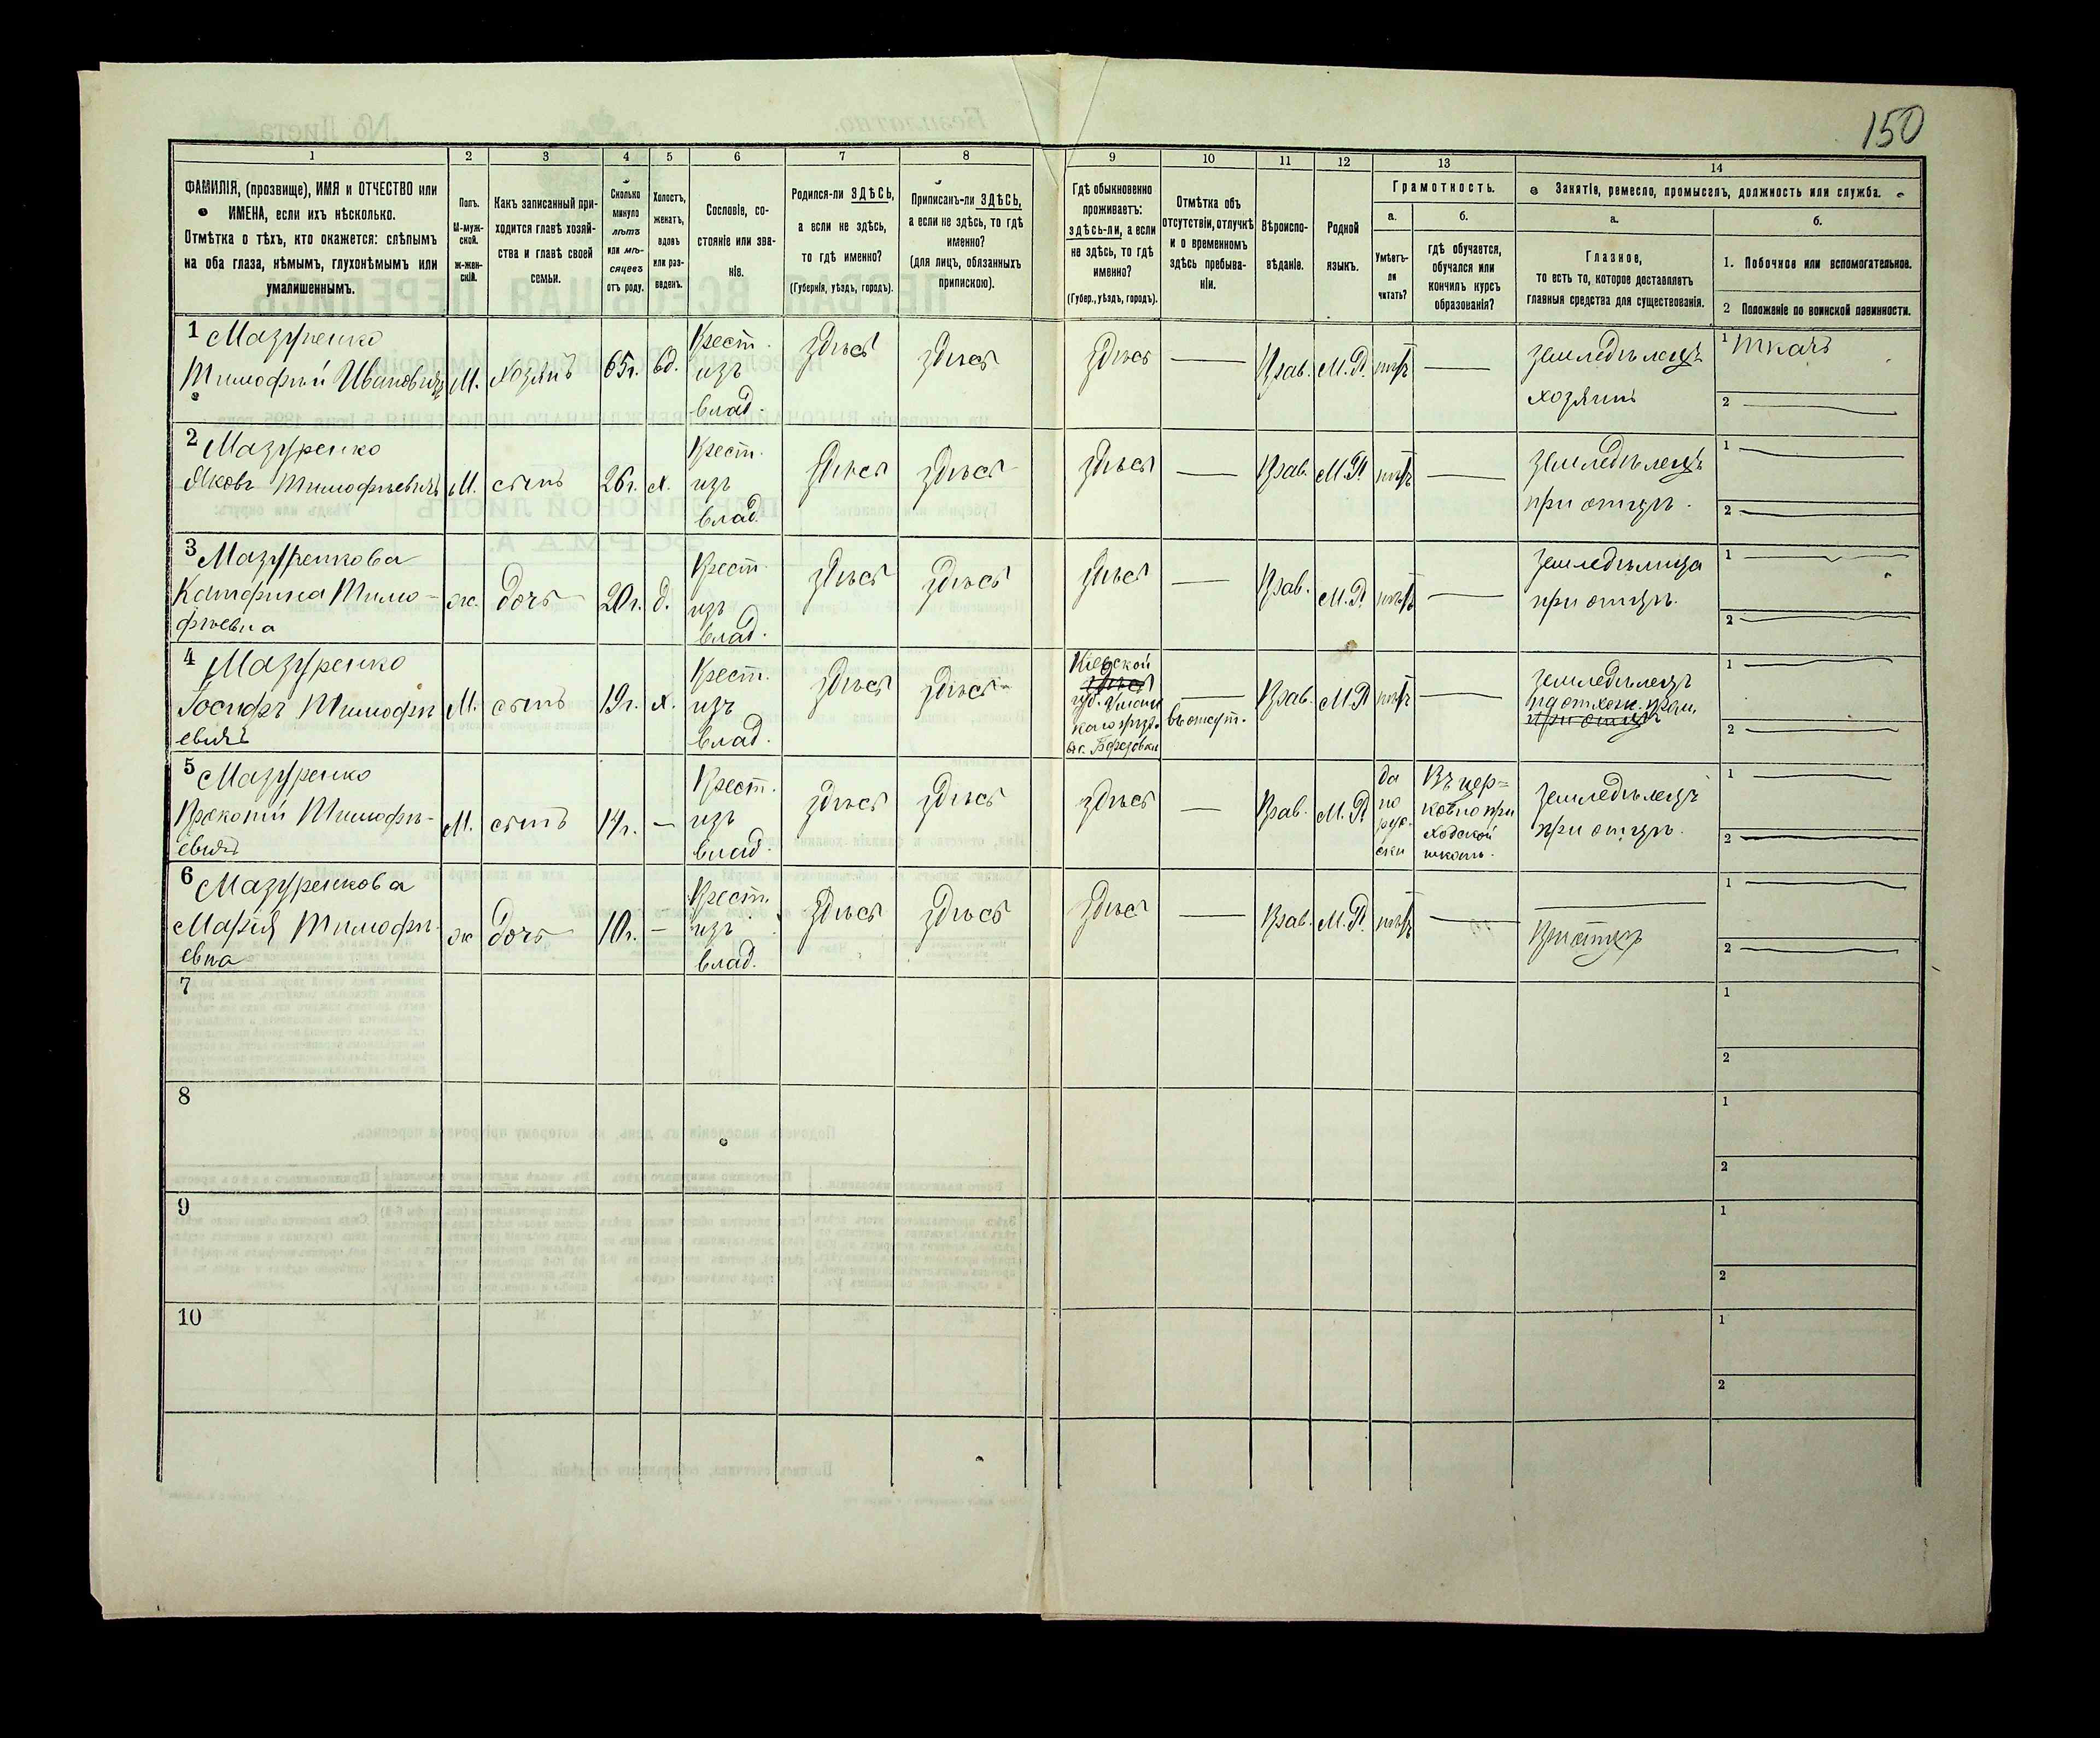 150
1
2
3
4
5
6
7
8
9
10
11
12
13
14
ФАМИЛІЯ, (прозвище), ИМЯ и ОТЧЕСТВО или
ИМЕНА, если ихъ нѣсколько.
Отмѣтка о тѣхъ, кто окажется: слѣпымъ
на оба глаза, нѣмымъ, глухонѣмымъ или
умалишеннымъ.
Полъ.
М-муж-
ской.
ж-жен-
скій.
Какъ записанный при-
ходится главѣ хозяй-
ства и главѣ своей
семьи.
Сколько
минуло
лѣтъ
или мѣ-
сяцевъ
отъ роду.
Холостъ,
женатъ,
вдовъ
или раз-
веденъ.
Сословіе, со-
стояніе или зва-
ніе.
Родился-ли ЗДѢСЬ,
а если не здѣсь,
то гдѣ именно?
(Губернія, уѣздъ, городъ).
Приписанъ-ли ЗДѢСЬ,
а если не здѣсь, то гдѣ
именно?
(для лицъ, обязанныхъ
припискою).
Гдѣ обыкновенно
проживаетъ:
здѣсь-ли, а если
не здѣсь, то гдѣ
именно?
(Губер., уѣздъ, городъ).
Отмѣтка объ
отсутствіи, отлучкѣ
и о временномъ
здѣсь пребыва-
ніи.
Вѣроиспо-
вѣданіе.
Родной
языкъ.
Грамотность.
а.
Умѣетъ-
ли
читать?
б.
гдѣ обучается,
обучался или
кончилъ курсъ
образованія?
Занятіе, ремесло, промыселъ, должность или служба.
а.
Главное,
то есть то, которое доставляетъ
главныя средства для существованія.
б.
1. Побочное или вспомогательное.
2 Положеніе по воинской повинности.
1 Мазуренко
Тимофѣй Ивановичъ
М.
хозяинъ
65г.
вд.
Крест.
изъ
влад.
здѣсь
здѣсь
здѣсь
Прав.
М.Р.
нѣтъ
земледѣлецъ
хозяинъ
1 ткачъ
2
2 Мазуренко
Яковъ Тимофѣевичъ
М.
сынъ
26г.
х.
Крест.
изъ
влад.
здѣсь
здѣсь
здѣсь
Прав.
М.Р.
нѣтъ
земледѣлецъ
при отцѣ.
1
2
3 Мазуренкова
Катерина Тимо-
фѣевна
ж.
дочь
20г.
д.
Крест.
изъ
влад.
здѣсь
здѣсь
здѣсь
Прав.
М.Р.
нѣтъ
земледѣлица
при отцѣ.
1
2
4 Мазуренко
Іосифъ Тимофѣ
евичъ
М.
сынъ
19г.
х.
Крест.
изъ
влад.
здѣсь
здѣсь
Кіевской
здѣсь
губ. Уманс
каго уѣзд.
въ отсут.
Прав.
М.Р.
нѣтъ
земледѣлецъ
на отхож. пром.
при отцѣ
1
2
5 Мазуренко
Прокопій Тимофѣ-
евичъ
М.
сынъ
14г.
Крест.
изъ
влад.
здѣсь
здѣсь
здѣсь
Прав.
М.Р.
да
по
рус-
ски
Въ цер=
ковно при
ходской
школѣ.
земледѣлецъ
при отцѣ.
1
2
6 Мазуренкова
Марія Тимофѣ-
евна
ж
дочь
10г.
Крест.
изъ
влад.
здѣсь
здѣсь
здѣсь
Прав.
М.Р.
нѣтъ
При отцѣ
1
2
7
1
2
8
1
2
9
1
2
10
1
2